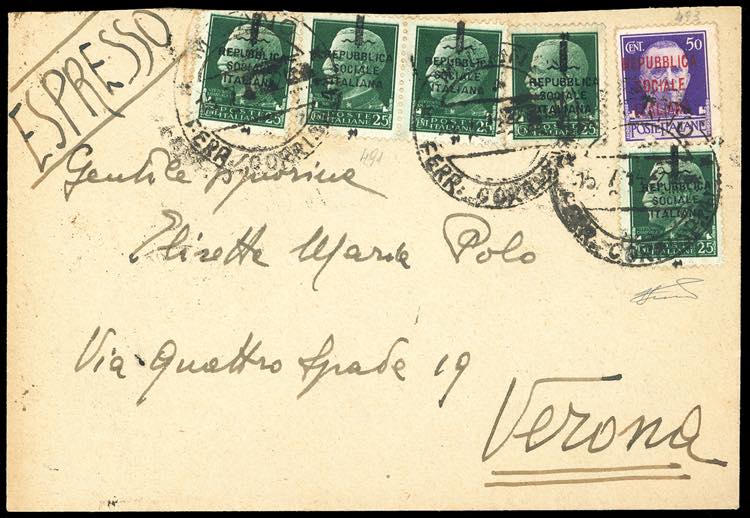 ESPRESSO
REPUBBLICA
SOCIALE
ITALIANA
POSTE
ITALIANE
25
REPUBBLICA
SOCIALE
ITALIANA
POSTE
CENT. ITALIANE 25
REPUBBLICA
SOCIALE
ITALIANA
POSTE
CENT. ITALIANE 25
REPUBBLICA
SOCIALE
ITALIANA
POSTE
CENT. ITALIANE 25
493
CENT. 50
REPUBBLICA
SOCIALE
ITALIANA
POSTE ITALIANE
REPUBBLICA
SOCIALE
ITALIANA
25
FERR.
FERR. CORR
491
Gentile Signorina
Elisetta Maria Polo
Via Quattro Spade 19
Verona